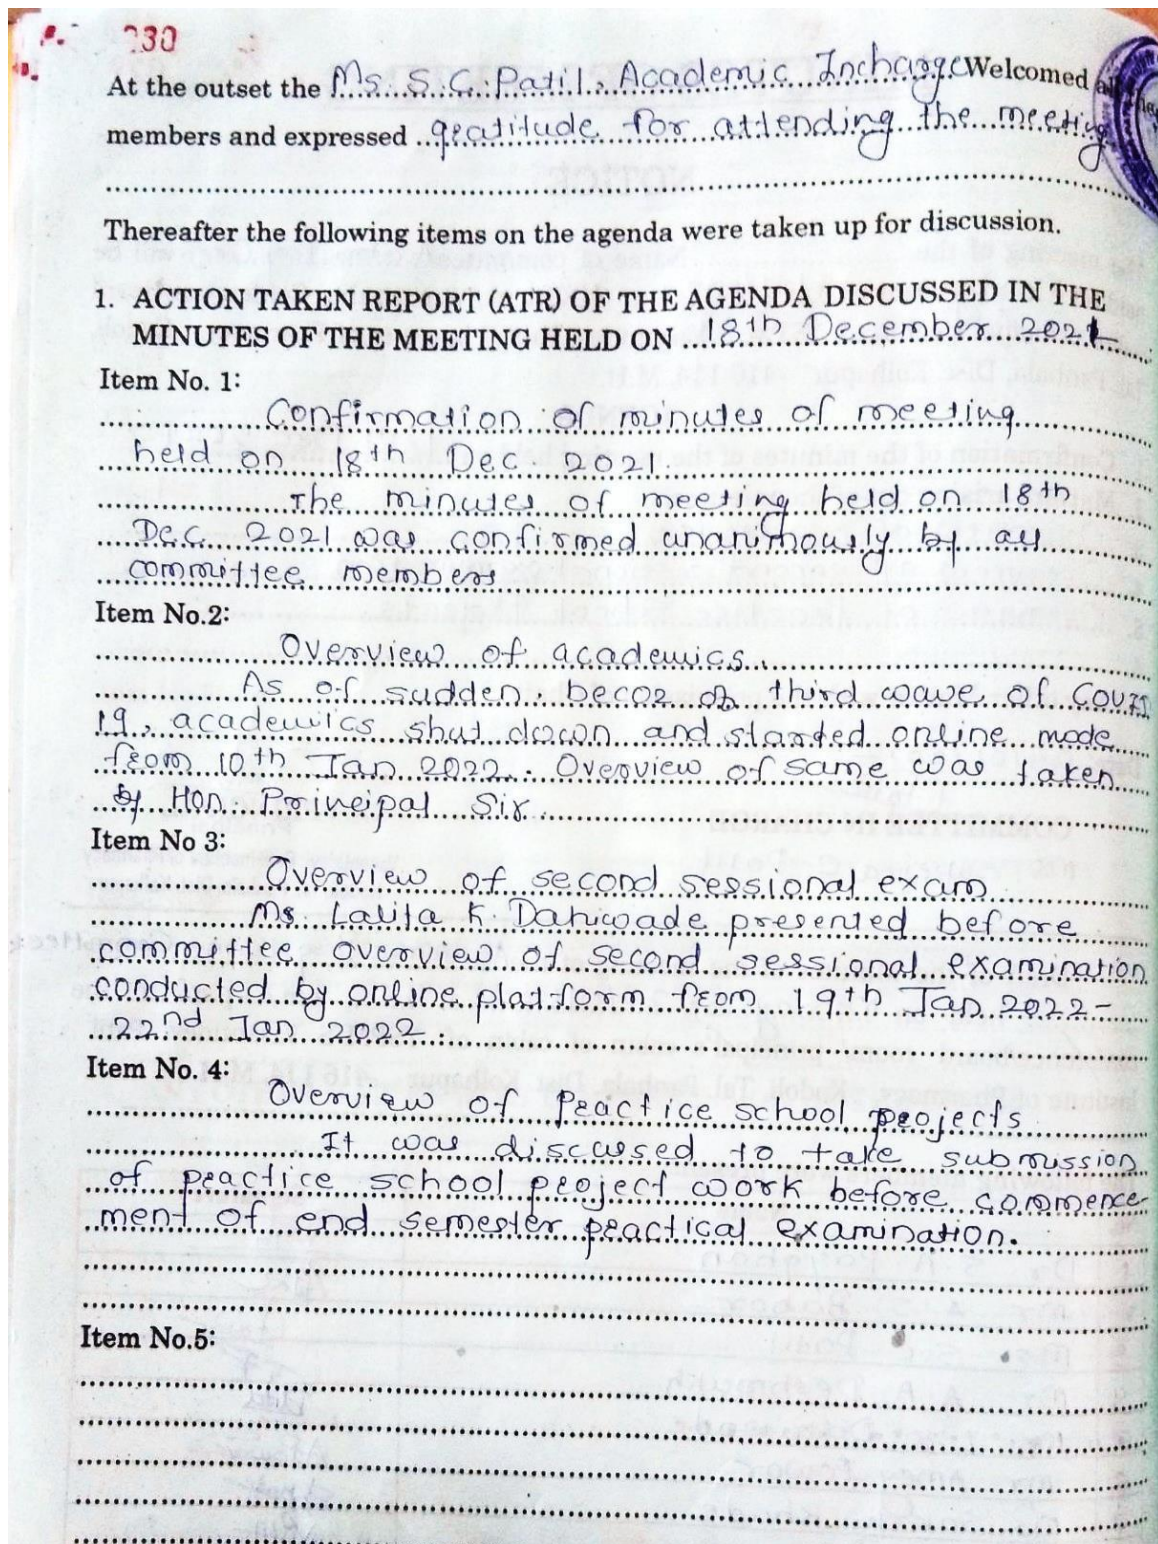 230
At the outset the Ms. S. C. Patil, Academic Incharge Welcomed all the
members and expressed gratitude for attending the meeting
Thereafter the following items on the agenda were taken up for discussion.
1. ACTION TAKEN REPORT (ATR) OF THE AGENDA DISCUSSED IN THE
MINUTES OF THE MEETING HELD ON 18th December 2021
Item No. 1:
Confirmation of minutes of meeting
held on 18th Dec 2021.
The minutes of meeting held on 18th
Dec 2021 was confirmed unanimously by all
committee members
Item No.2:
Overview of academics.
As of sudden becoz of third wave of Covid
19, academics shut down and started online mode
from 10th Jan 2022. Overview of same was taken
by Hon. Principal Sir.
Item No 3:
Overview of second sessional exam
Ms. Lalita K. Dahiwade presented before
committee overview of second sessional examination
conducted by online platform from 19th Jan 2022-
22nd Jan 2022.
Item No. 4:
Overview of Practice school projects
It was discussed to take submission
of practice school project work before commence-
ment of end semester practical examination.
Item No.5: